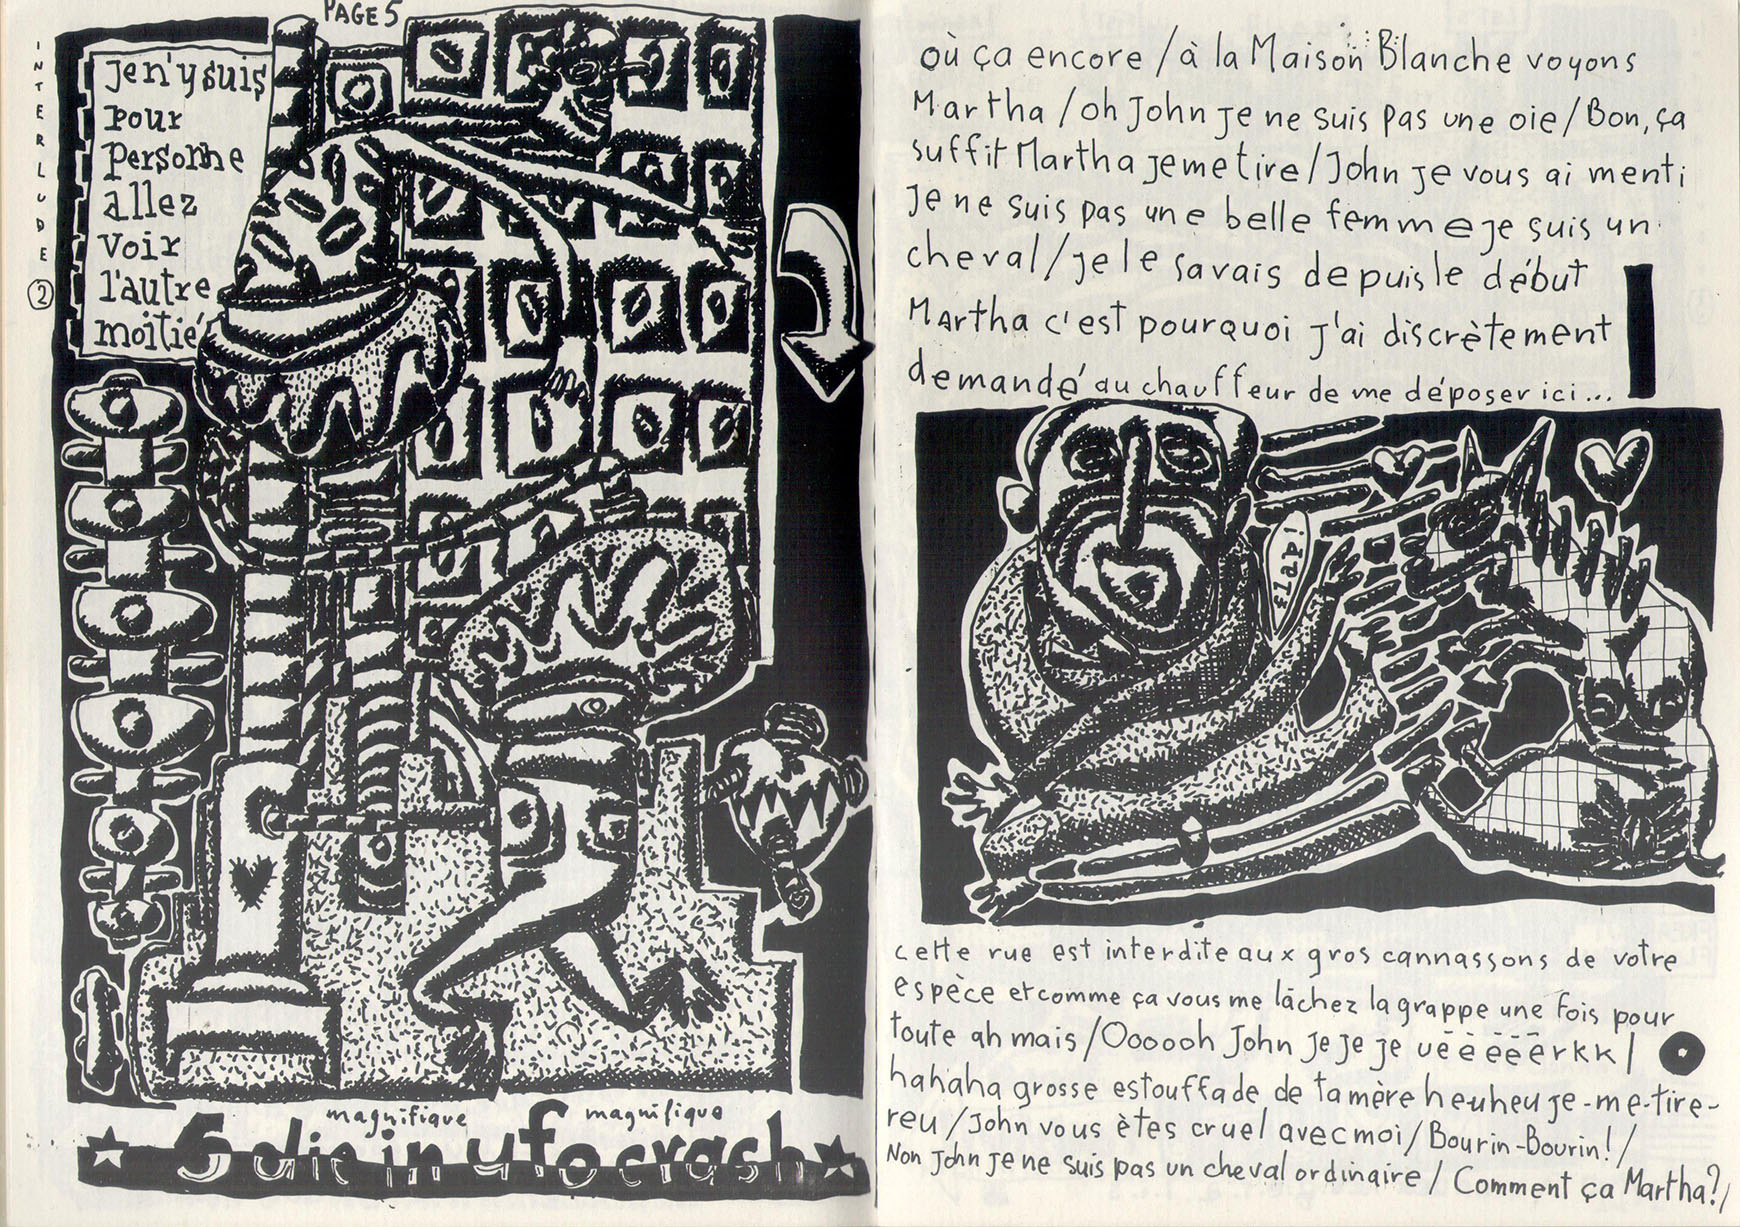 PAGE 5
INTERLUDE 2
je n'y suis
pour
personne
allez
voir
l'autre
moitié
magnifique magnifique
5 die in ufo crash
où ça encore / à la Maison Blanche voyons
Martha / oh John je ne suis pas une oie / Bon, ça
suffit Martha je me tire / John je vous ai menti
je ne suis pas une belle femme je suis un
cheval / je le savais depuis le début
Martha c'est pourquoi j'ai discrètement
demandé au chauffeur de me déposer ici...
flap!
cette rue est interdite aux gros cannassons de votre
espèce et comme ça vous me lâchez la grappe une fois pour
toute ah mais / Oooooh John je je je uëëëëërkk /
hahaha grosse estouffade de ta mère heuheu je-me-tire-
reu / John vous êtes cruel avec moi / Bourin-Bourin! /
Non John je ne suis pas un cheval ordinaire / Comment ça Martha? /